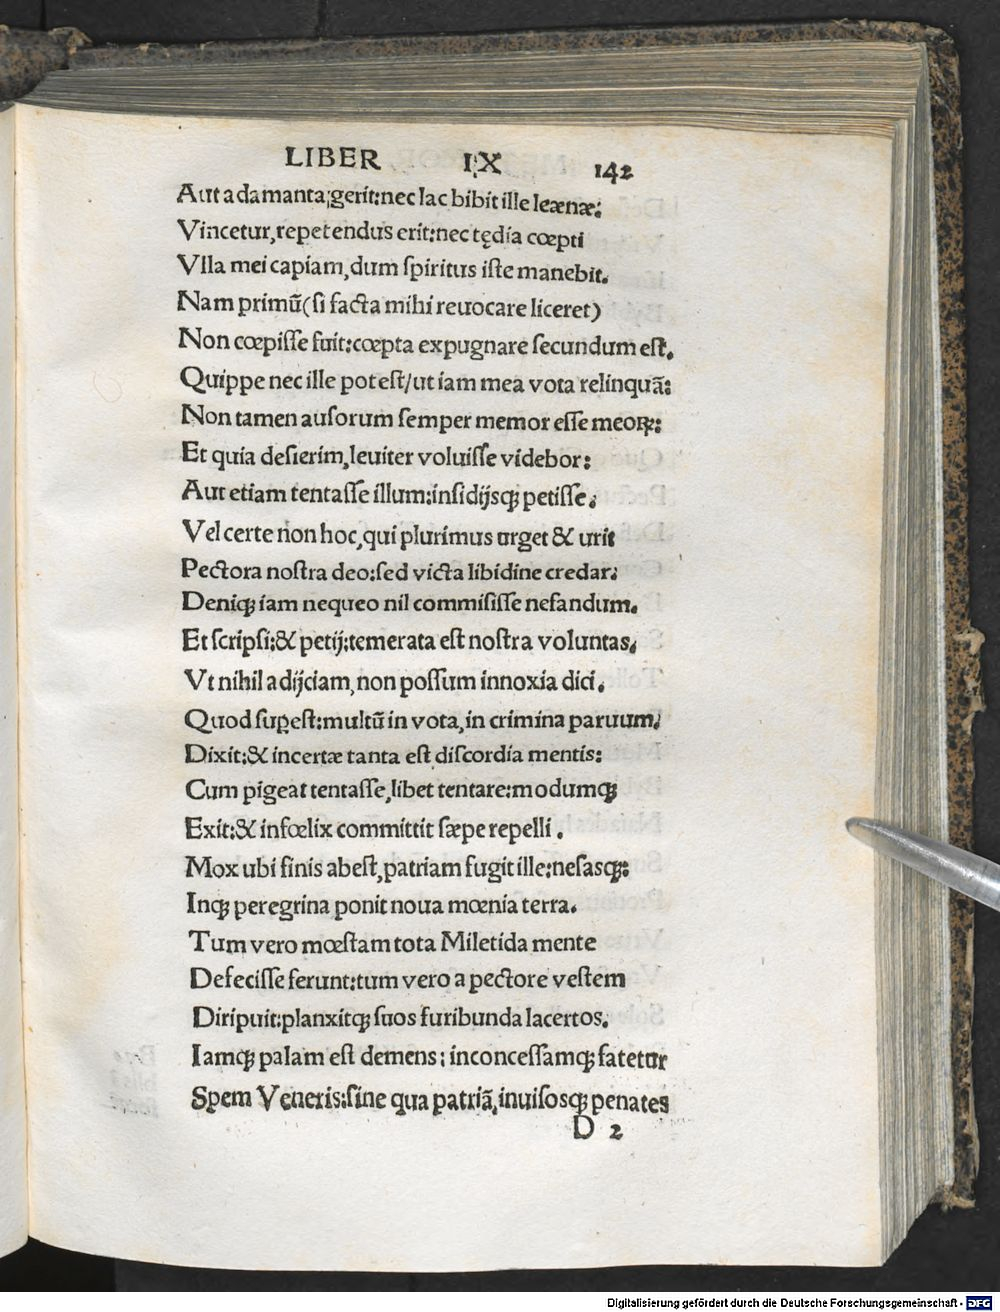 LIBER IX 142
Aut adamanta gerit:nec lac bibit ille leænæ:
Vincetur,repetendus erit:nec tędia cœpti
Vlla mei capiam,dum ſpiritus iſte manebit.
Nam primũ(ſi facta mihi reuocare liceret)
Non cœpiſſe fuit:cœpta expugnare ſecundum eſt.
Quippe nec ille poteſt/ut iam mea vota relinquã:
Non tamen auſorum ſemper memor eſſe meoꝝ:
Et quia deſierim,leuiter voluiſſe videbor:
Aut etiam tentaſſe illum:inſidijsqꝫ petiſſe.
Vel certe non hoc,qui plurimus urget & urit
Pectora noſtra deo:ſed victa libidine credar:
Deniqꝫ iam nequeo nil commiſiſſe nefandum.
Et ſcripſi:& petij:temerata eſt noſtra voluntas.
Vt nihil adijciam,non poſſum innoxia dici.
Quod ſuꝑeſt:multũ in vota,in crimina paruum.
Dixit:& incertæ tanta eſt diſcordia mentis:
Cum pigeat tentaſſe,libet tentare:modumqꝫ
Exit:& infœlix committit ſæpe repelli.
Mox ubi finis abeſt,patriam fugit ille:neſasqꝫ:
Inqꝫ peregrina ponit noua mœnia terra.
Tum vero mœſtam tota Miletida mente
Defeciſſe ferunt:tum vero a pectore veſtem
Diripuit:planxitqꝫ ſuos furibunda lacertos.
Iamqꝫ palam eſt demens: inconceſſamqꝫ fatetur
Spem Veneris:ſine qua patriã,inuiſosqꝫ penates
D 2
Digitalisierung gefördert durch die Deutsche Forschungsgemeinschaft - DFG